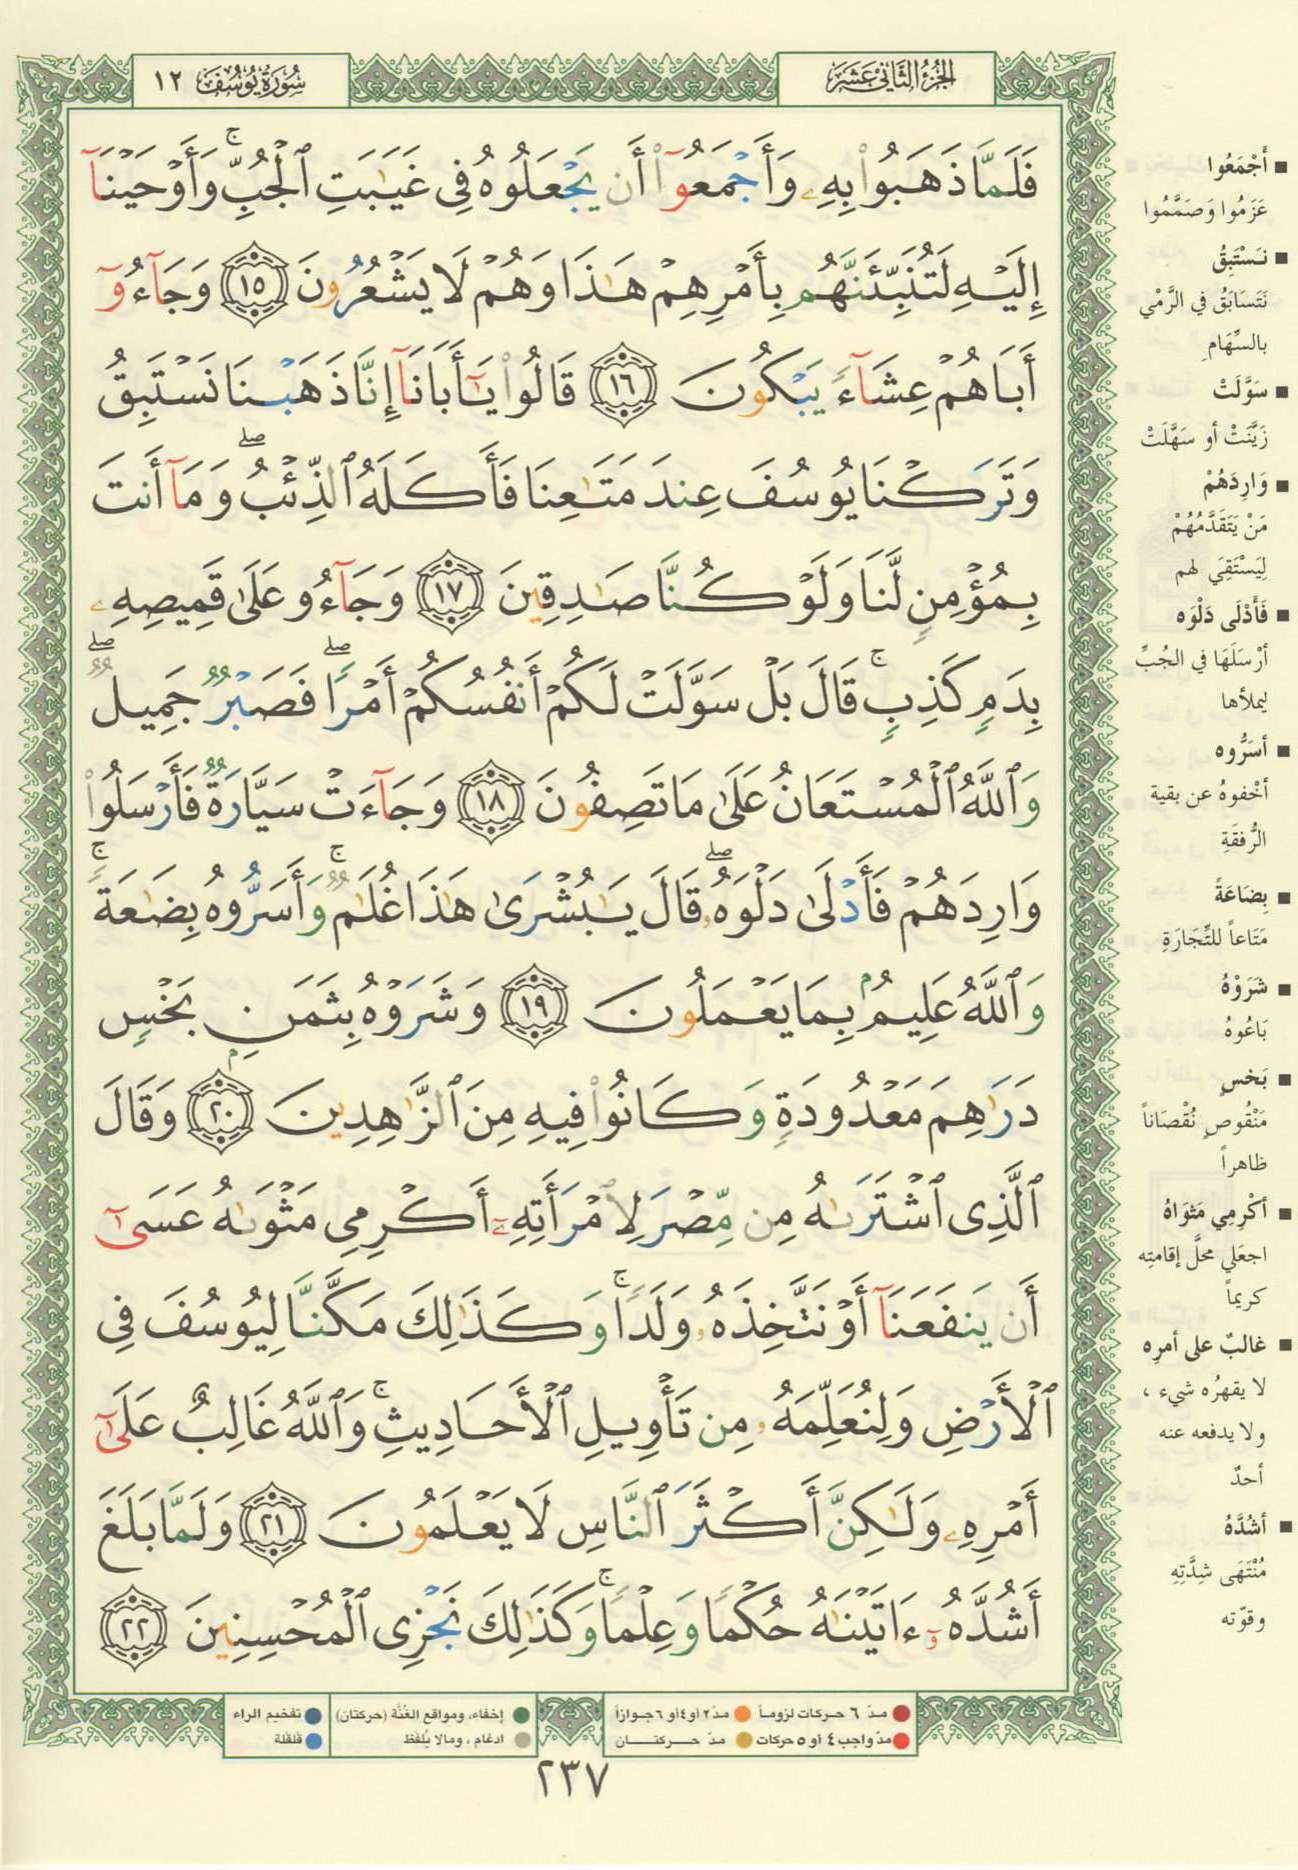 الجزء الثاني عشر
سورة يوسف ١٢
فَلَمَّا ذَهَبُوا۟ بِهِۦ وَأَجْمَعُوٓا۟ أَن يَجْعَلُوهُ فِى غَيَٰبَتِ ٱلْجُبِّ ۚ وَأَوْحَيْنَآ
إِلَيْهِ لَتُنَبِّئَنَّهُم بِأَمْرِهِمْ هَٰذَا وَهُمْ لَا يَشْعُرُونَ ١٥ وَجَآءُوٓ
أَبَاهُمْ عِشَآءً يَبْكُونَ ١٦ قَالُوا۟ يَٰٓأَبَانَآ إِنَّا ذَهَبْنَا نَسْتَبِقُ
وَتَرَكْنَا يُوسُفَ عِندَ مَتَٰعِنَا فَأَكَلَهُ ٱلذِّئْبُ ۖ وَمَآ أَنتَ
بِمُؤْمِنٍ لَّنَا وَلَوْ كُنَّا صَٰدِقِينَ ١٧ وَجَآءُو عَلَىٰ قَمِيصِهِۦ
بِدَمٍ كَذِبٍ ۚ قَالَ بَلْ سَوَّلَتْ لَكُمْ أَنفُسُكُمْ أَمْرًا ۖ فَصَبْرٌ جَمِيلٌ ۖ
وَٱللَّهُ ٱلْمُسْتَعَانُ عَلَىٰ مَا تَصِفُونَ ١٨ وَجَآءَتْ سَيَّارَةٌ فَأَرْسَلُوا۟
وَارِدَهُمْ فَأَدْلَىٰ دَلْوَهُۥ ۖ قَالَ يَٰبُشْرَىٰ هَٰذَا غُلَٰمٌ ۚ وَأَسَرُّوهُ بِضَٰعَةً ۚ
وَٱللَّهُ عَلِيمٌۢ بِمَا يَعْمَلُونَ ١٩ وَشَرَوْهُ بِثَمَنٍۭ بَخْسٍ
دَرَٰهِمَ مَعْدُودَةٍ وَكَانُوا۟ فِيهِ مِنَ ٱلزَّٰهِدِينَ ٢٠ وَقَالَ
ٱلَّذِى ٱشْتَرَىٰهُ مِن مِّصْرَ لِٱمْرَأَتِهِۦٓ أَكْرِمِى مَثْوَىٰهُ عَسَىٰٓ
أَن يَنفَعَنَآ أَوْ نَتَّخِذَهُۥ وَلَدًا ۚ وَكَذَٰلِكَ مَكَّنَّا لِيُوسُفَ فِى
ٱلْأَرْضِ وَلِنُعَلِّمَهُۥ مِن تَأْوِيلِ ٱلْأَحَادِيثِ ۚ وَٱللَّهُ غَالِبٌ عَلَىٰٓ
أَمْرِهِۦ وَلَٰكِنَّ أَكْثَرَ ٱلنَّاسِ لَا يَعْلَمُونَ ٢١ وَلَمَّا بَلَغَ
أَشُدَّهُۥٓ ءَاتَيْنَٰهُ حُكْمًا وَعِلْمًا ۚ وَكَذَٰلِكَ نَجْزِى ٱلْمُحْسِنِينَ ٢٢
■ أَجْمَعُوا
عَزَمُوا وَصَمَّمُوا
■ نَسْتَبِقُ
نَتَسَابَقُ في الرَّمْي
بالسِّهَامِ
■ سَوَّلَتْ
زَيَّنَتْ أو سَهَّلَتْ
■ وَارِدَهُمْ
مَنْ يَتَقَدَّمُهُمْ
لِيَسْتَقِيَ لهم
■ فَأَدْلَى دَلْوَه
أَرْسَلَهَا في الجُبِّ
ليملأها
■ أسَرُّوه
أخْفوهُ عن بقية
الرُّفقَةِ
■ بِضَاعَةً
مَتَاعاً للتِّجَارَةِ
■ شَرَوْهُ
بَاعُوهُ
■ بَخسٍ
مَنْقُوصٍ نُقْصَاناً
ظاهراً
■ أكْرِمِي مَثوَاهُ
اجعَلي محلَّ إقامتِه
كريماً
■ غالبٌ على أمرِه
لا يقهرُه شيء ،
ولا يدفعه عنه
أحدٌ
■ أشُدَّهُ
مُنْتَهَى شِدَّتِهِ
وقوّته
مدّ ٦ حركات لزوماً مدّ ٢ أو ٤ أو ٦ جوازاً
مدّ واجب ٤ أو ٥ حركات مدّ حركتان
إخفاء، ومواقع الغُنَّة (حركتان) تفخيم الراء
ادغام ، ومالا يُلفَظ قلقلة
٢٣٧